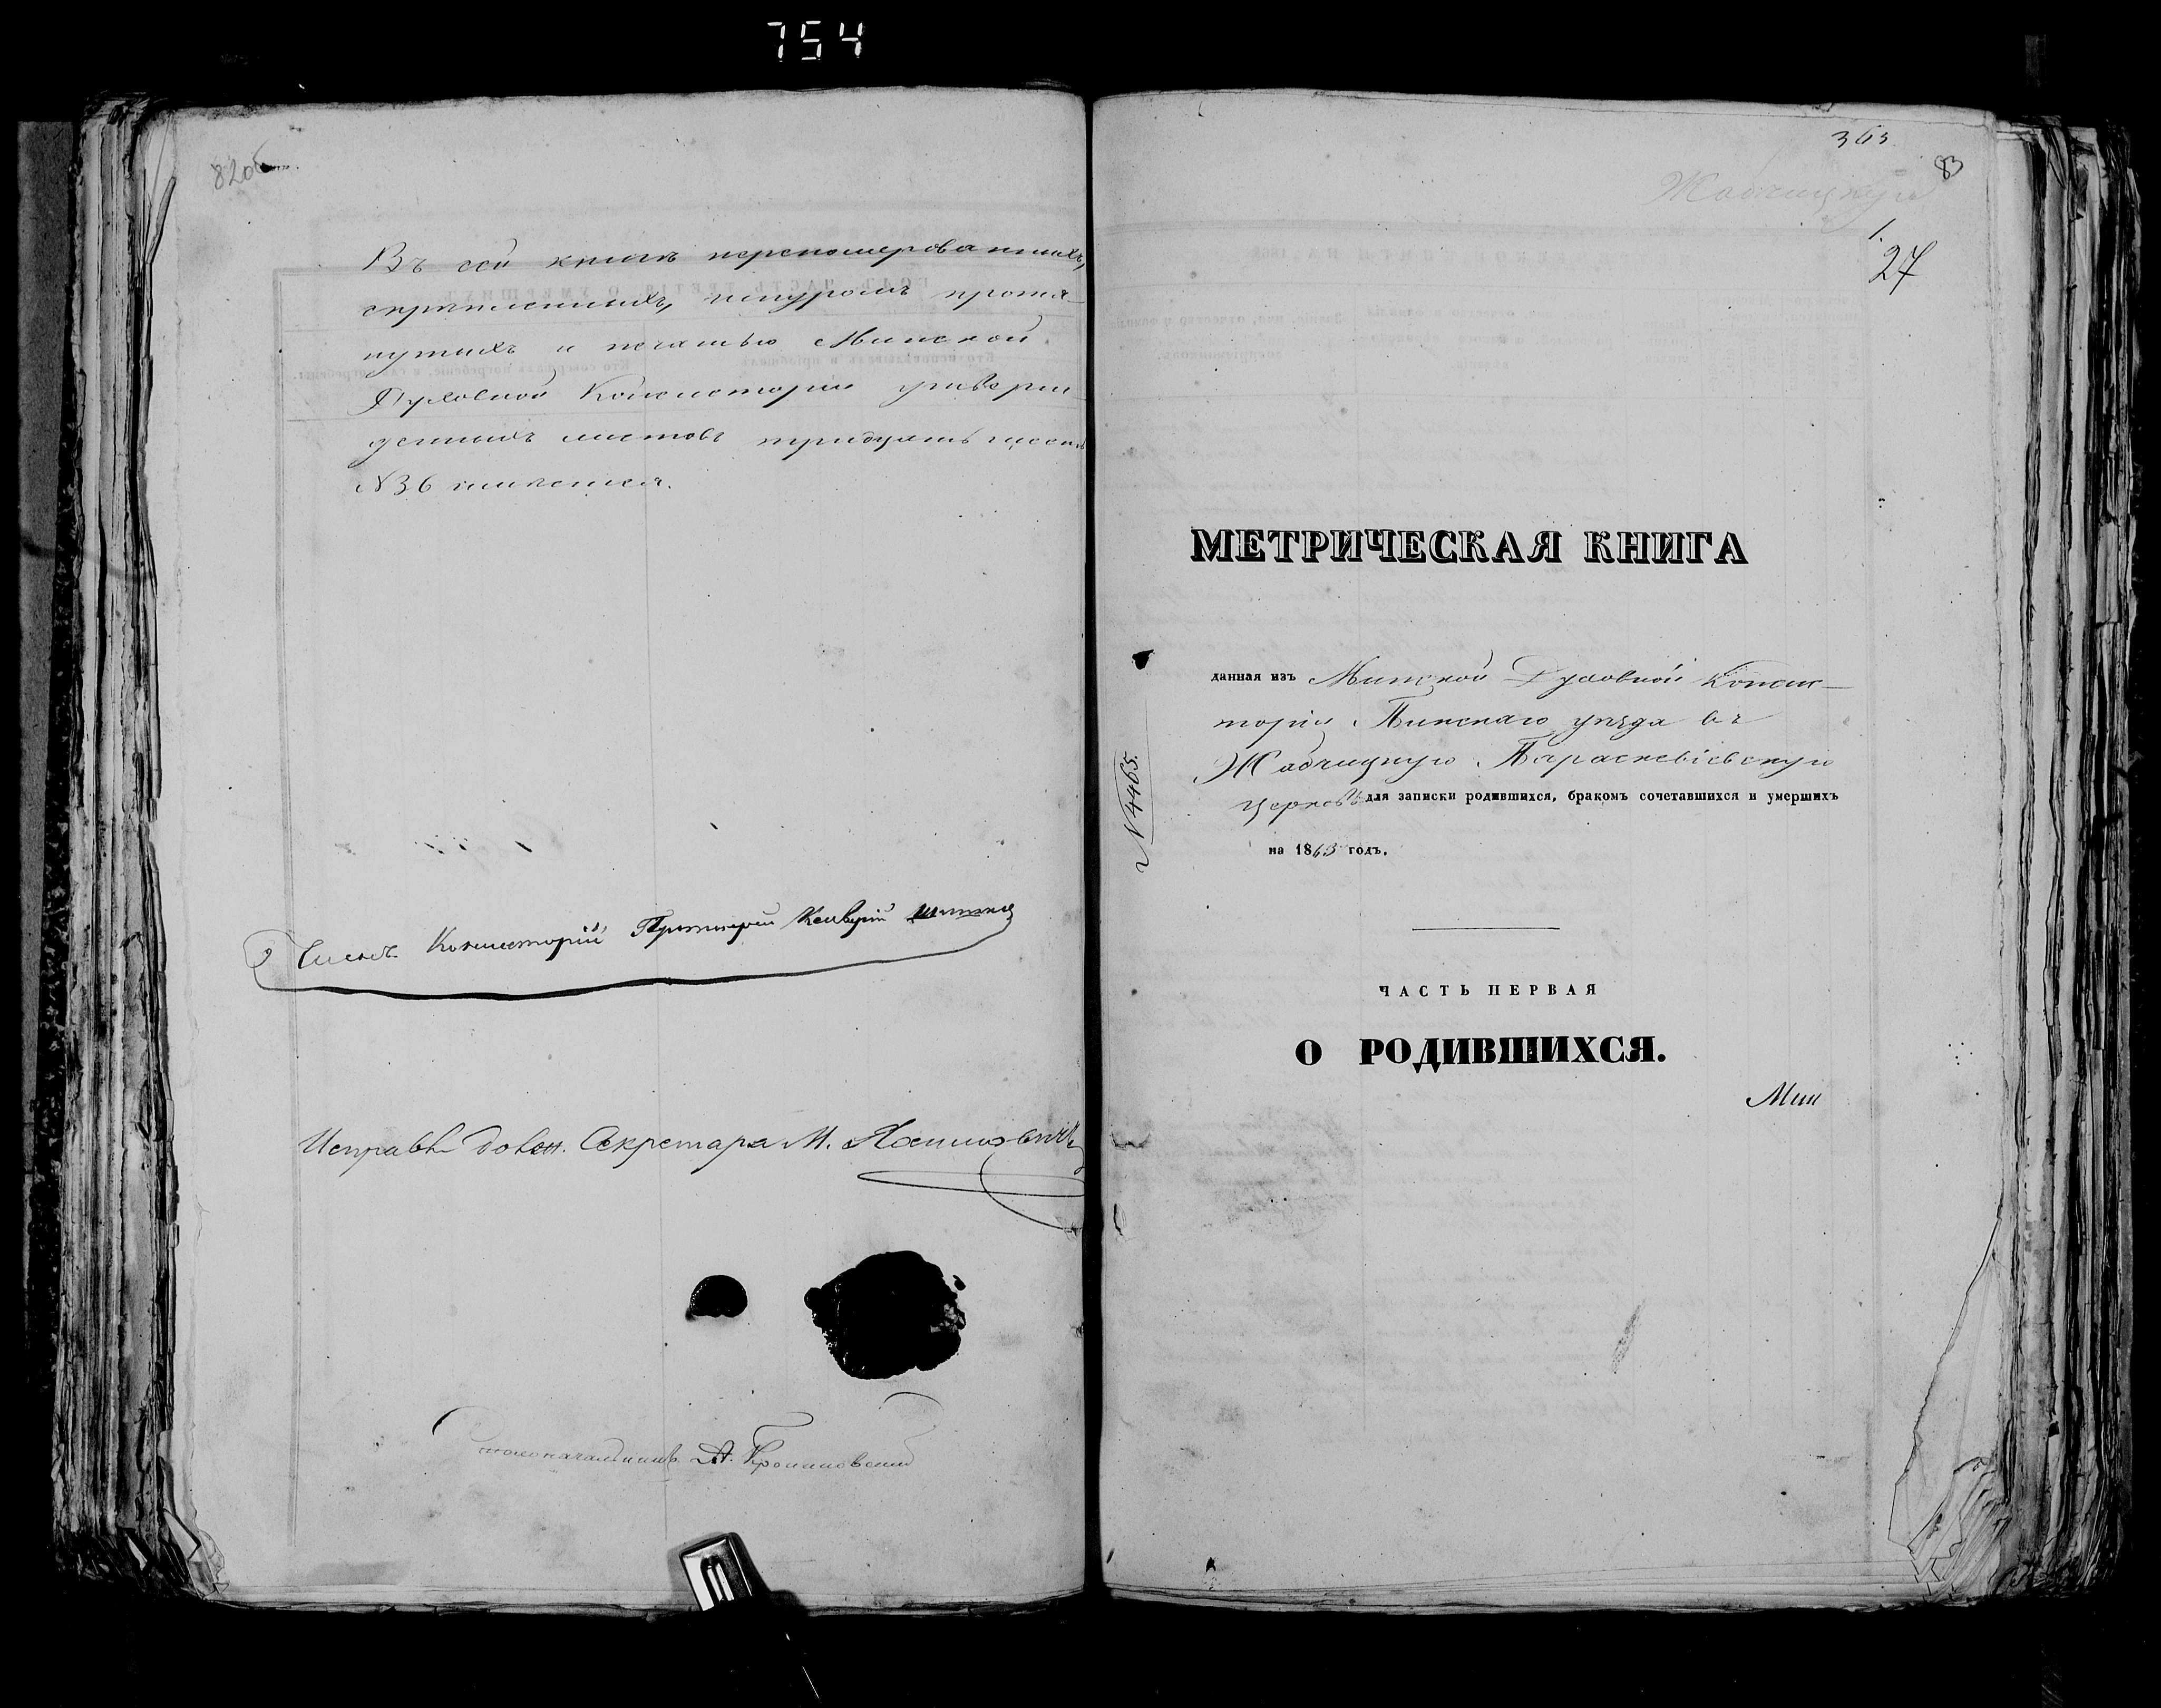 754
82об
Въ сей книгѣ перенумерованныхъ,
скрѣпленныхъ, шнуромъ протя-
нутыхъ и печатью Минской
Духовной Консисторіи утверж
денныхъ листовъ тридцать шесть
№36 имѣется.
Членъ Консисторіи Протоіерей
Исправл. долж. Секретаря М.
Столоначальникъ А.
363
83
Жабчицкую
1.
27
МЕТРИЧЕСКАЯ КНИГА
данная изъ Минской Духовной Консис-
торіи Пинскаго уѣзда въ
Жабчицкую Параскевіевскую
церковь для записки родившихся, бракомъ сочетавшихся и умершихъ
на 1863 годъ.
№4465.
ЧАСТЬ ПЕРВАЯ
О РОДИВШИХСЯ.
Мин